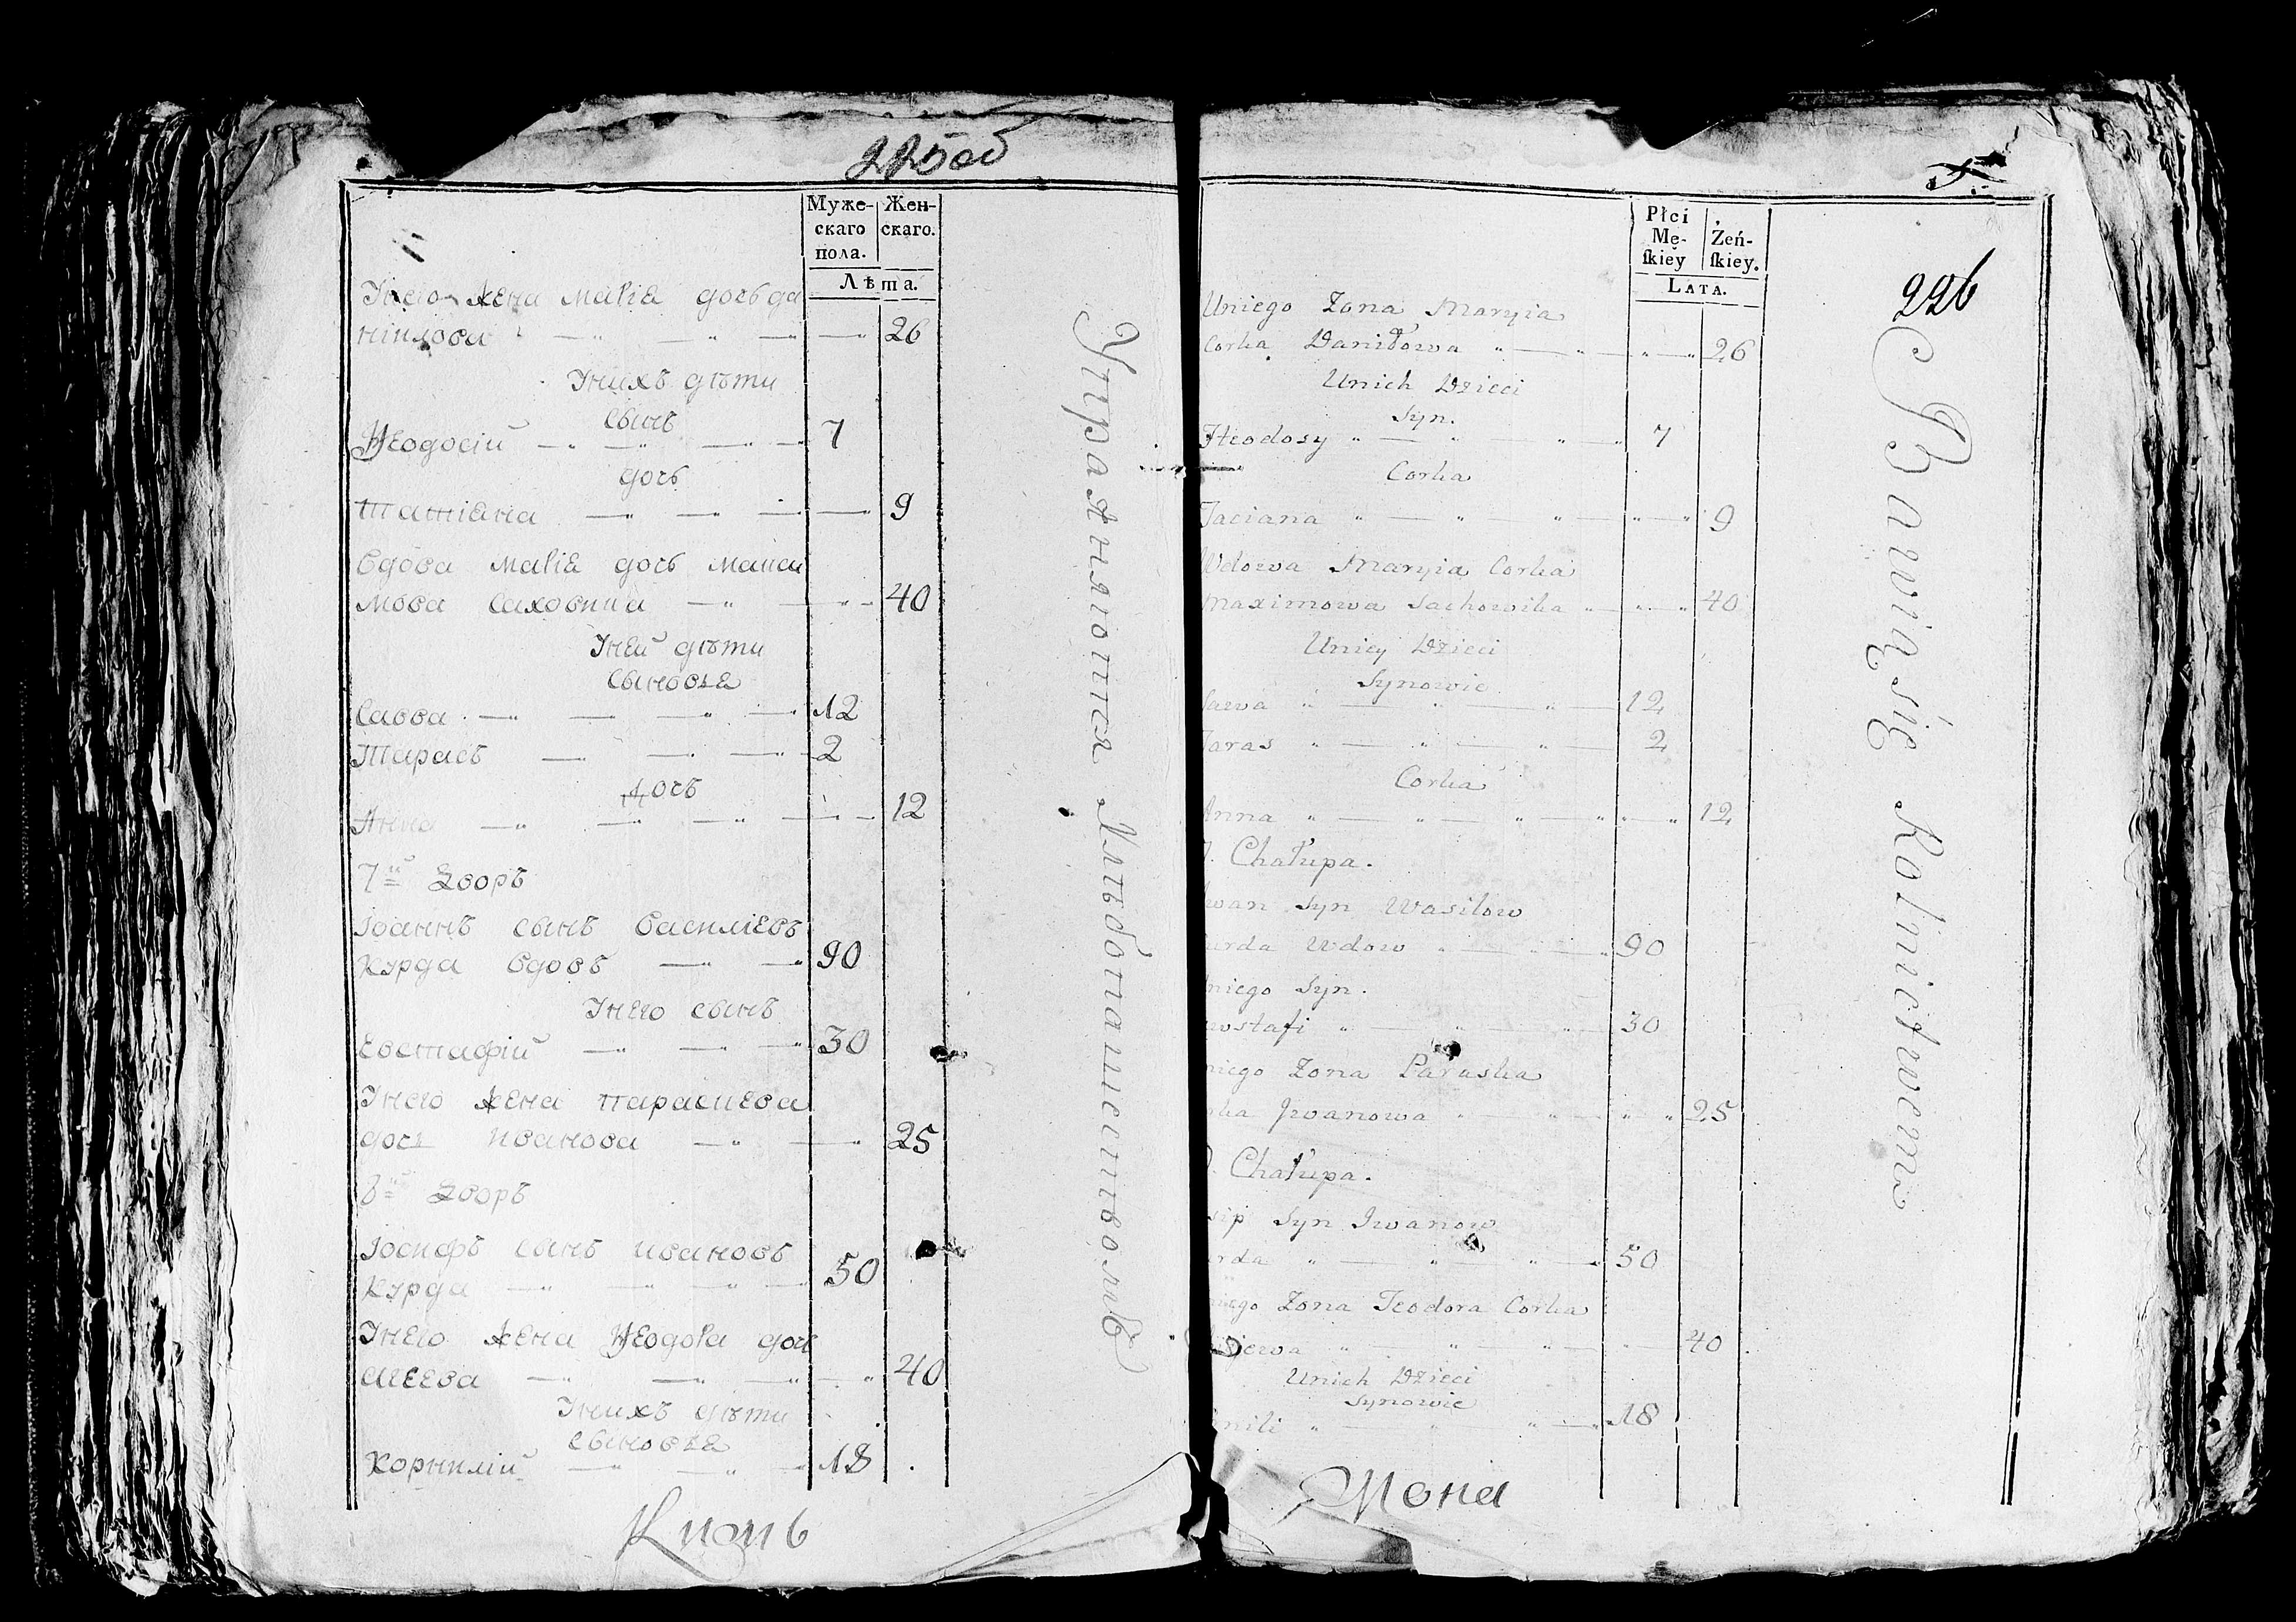 225об
Муже-
скаго
пола.
Жен-
скаго.
Лѣта.
Унего жена Марiя дочь да
нiилова 26
Унихъ дѣти
сынъ
Ѳеодосiй 7
дочь
Татiана 9
Вдова Марiя дочь Макси
мова Саховика 40
Уней дѣти
сыновья
Савва 12
Тарасъ 2
дочь
Анна 12
7й Дворъ
Iоаннъ сынъ Василiевъ
Курда вдовъ 90
Унего сынъ
Евстафiй 30
Унего жена Параскева
дочь Иванова 25
8й Дворъ
Iосифъ сынъ Ивановъ
Курда 50
Унего жена Ѳеодора дочь
Агеева 40
Унихъ дѣти
сыновья
Корнилiй 18
Упражняются Хлѣбопашествомъ
Князь
226
Płci
Mę-
ſkiey
Żeń-
ſkiey.
Lata.
Uniego Zona Maryia
Corka Daniłowa 26
Unich Dzieci
Syn.
Fteodosy 7
Corka
Taciana 9
Wdowa Maryia Corka
Maximowa Sachowika 40
Uniey Dzieci
Synowie
Sawa 12
Taras 2
Corka
Anna 12
Chałupa.
wan Syn Wasilow
urda Wdow 90
niego Syn.
wstafi 30
niego Zona Paraska
rka Jwanowa 25
Chałupa.
sip Syn Jwanow
rda 50
niego Zona Teodora Corka
iejewa 40
Unich Dzieci
Synowie
nili 18
Bawiąsię Rolnictwem
Мона